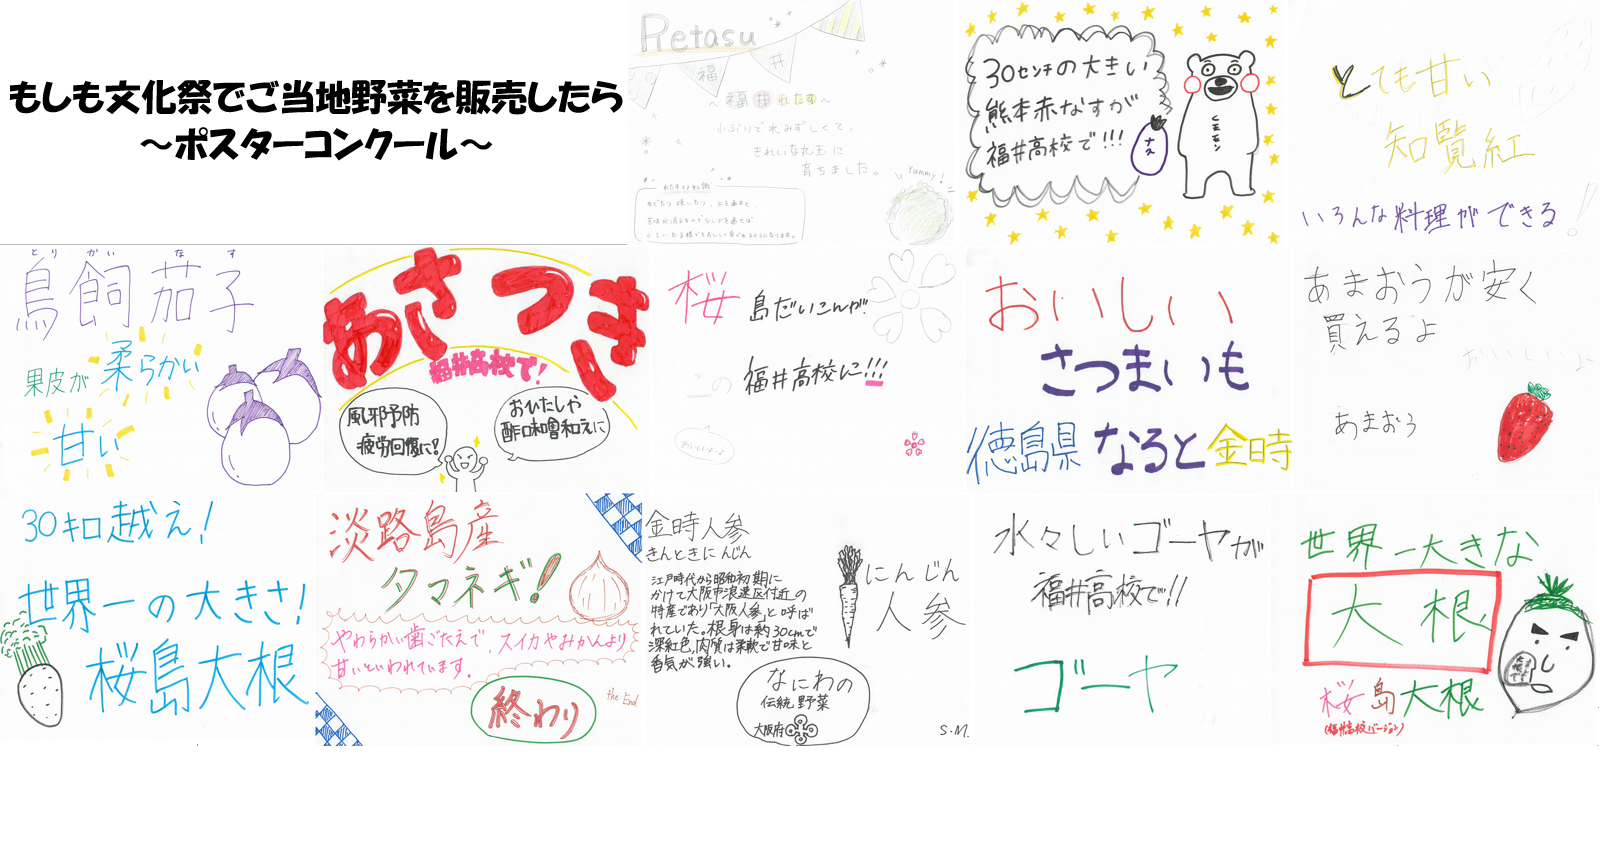 もしも文化祭でご当地野菜を販売したら
～ポスターコンクール～
Retasu
福井
～福井れたす～
小ぶりで水みずしくて、
きれいな丸玉に
育ちました。
Yummy!
30センチの大きい
熊本赤なすが
福井高校で!!!
ナス
くまモン
とても甘い
知覧紅
いろんな料理ができる!!
とりかいなす
鳥飼茄子
果皮が柔らかい
甘い
あさつき
福井高校で!
風邪予防
疲労回復に!
おひたしや
酢味噌和えに
桜島だいこんが!
この福井高校に!!!
おいしいよ
おいしい
さつまいも
徳島県なると金時
あまおうが安く
買えるよ
おいしいよ
あまおう
30キロ越え!
世界一の大きさ!
桜島大根
淡路島産
タマネギ!
やわらかい歯ごたえで、スイカやみかんより
甘いといわれています。
終わり
the End
金時人参
きんときにんじん
江戸時代から昭和初期に
かけて大阪市浪速区付近の
特産であり「大阪人参」と呼ば
れていた。根身は約30cmで
深紅色、肉質は柔軟で甘味と
香気が強い。
にんじん
人参
なにわの
伝統野菜
大阪府
S.M.
水々しいゴーヤが
福井高校で!!
ゴーヤ
世界一大きな
大根
桜島大根
(福井高校バージョン)